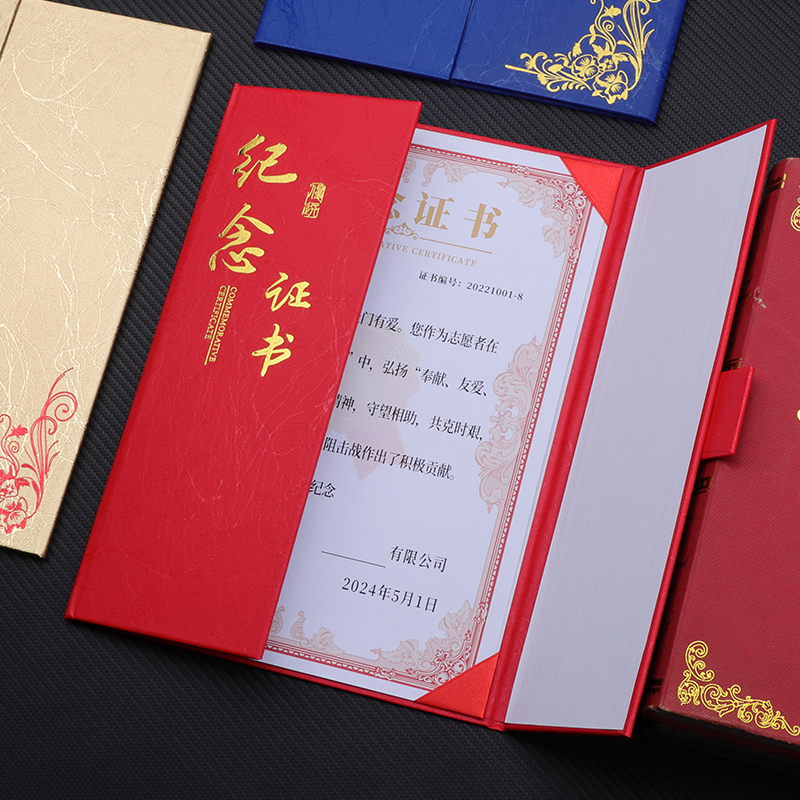 纪念证书
COMMEMORATIVE
CERTIFICATE
念证书
ATIVE CERTIFICATE
证书编号：20221001-8
门有爱。您作为志愿者在
”中，弘扬“奉献、友爱、
精神，守望相助，共克时艰，
阻击战作出了积极贡献。
纪念
有限公司
2024年5月1日